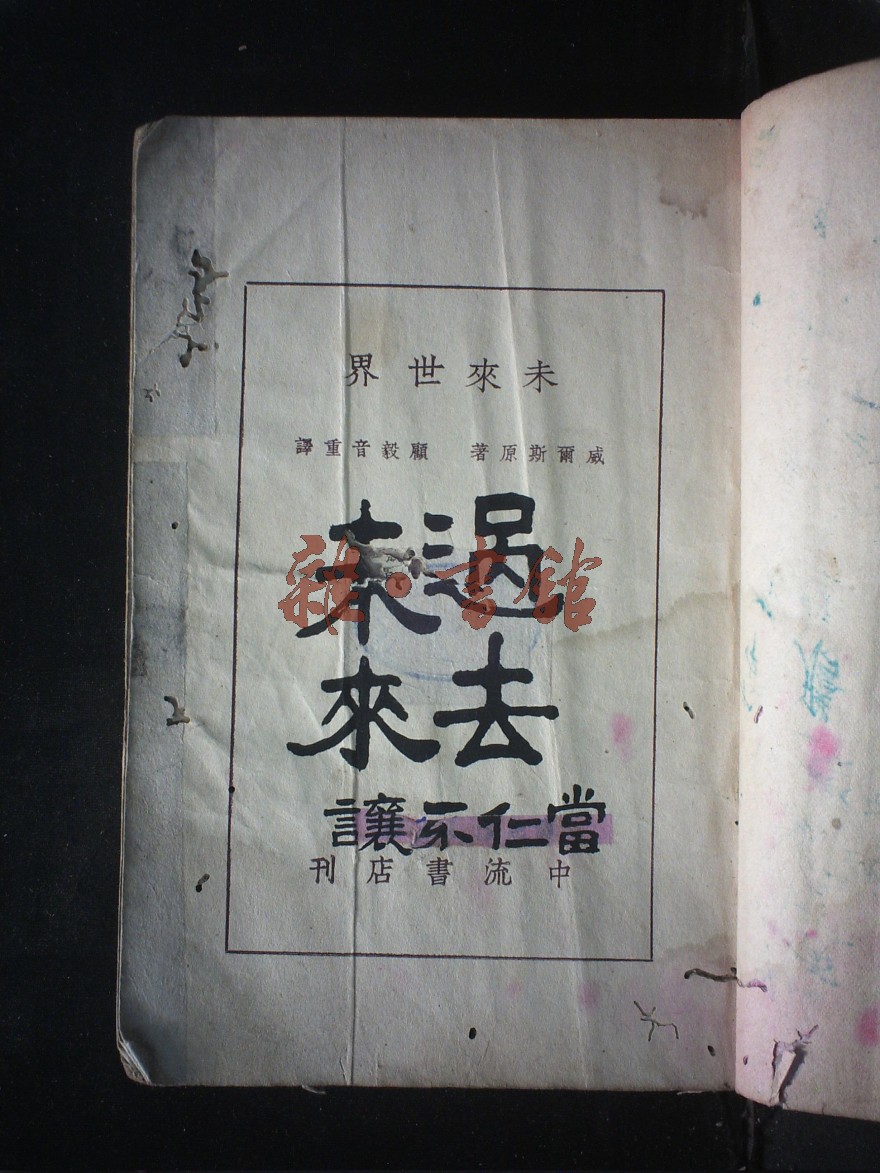 未來世界
威爾斯原著 顧毅音重譯
過去
未來
雜·書館
當仁不讓
中流書店刊